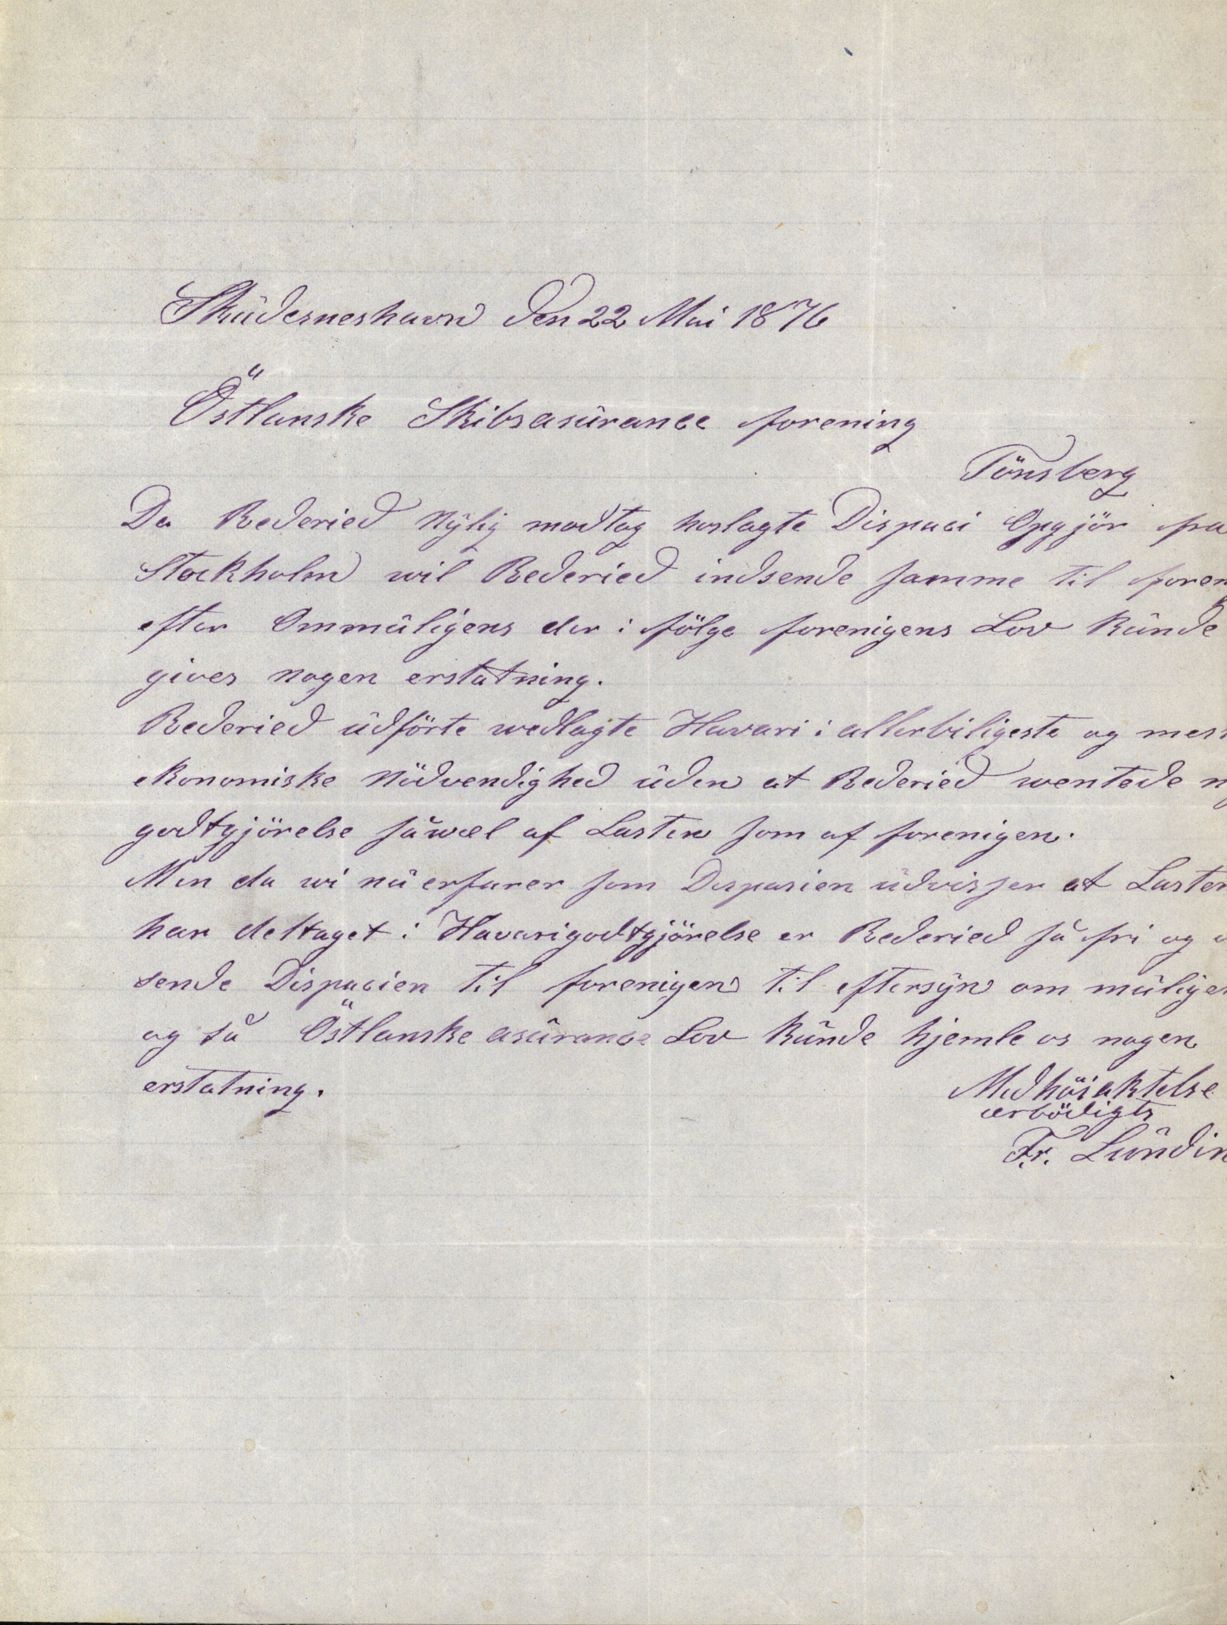 Skudesneshavn den 22 Mai 1876
Östlanske Skibsasurance forening
Tönsberg
Da Rederied nylig modtog hoslagte Dispaci Opgjör fra
Stockholm wil Rederied indsende samme til foren
efter Ommuligens der i fölge forenigens Lov kunde
gives nogen erstatning.
Rederied udförte wedlagte Havari i allerbiligeste og mest
ekonomiske Nödvendighed uden at Rederied wentede n
godtgjörelse såwæl af Lasten som af forenigen.
Men da wi nu erfarer som Dispasien udvisser at Lasten
har deltaget i Havarigodtgjörelse er Rederied så fri og
sende Dispacien til forenigens til eftersyn om muligen
og så Östlanske asurance Lov kunde hjemle os nogen
erstatning.
Med höiaktelse
ærbödigts
Fr. Lundin